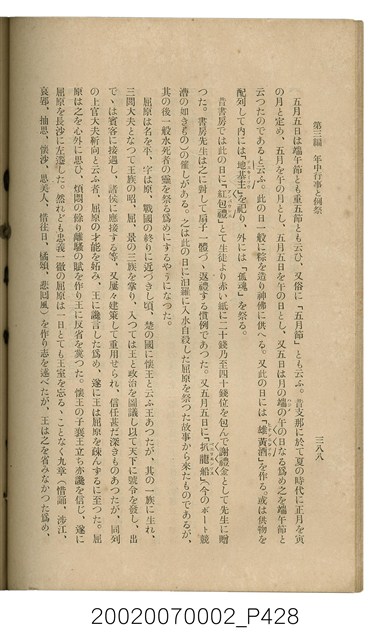 第三編　年中行事と例祭
三八八
五月五日は端午節とも重五節とも云ひ、又俗に「五月節」とも云ふ。昔支那に於て夏の時代に正月を寅
の月と定め、五月を午の月とし、五月五日を午の日とし、又五日は月の端の午の日なる爲め之を端午節と
云つたのであると云ふ。此の日一般に粽を造り神佛に供へる。又此の日には「雄黃酒」を作る或は供物を
配列して内には「地基主」を祀り、外には「孤魂」を祭る。
昔書房では此の日に「紅包禮」とて生徒より赤い紙に二十錢乃至四十錢位を包んで謝禮金として先生に贈
つた。書房先生は之に對して扇子一體づゝ返禮する慣例であつた。又五月五日に「扒龍船」（今のボート競
漕の如きもの）の催しがある。之は此の日に汨羅に入水自殺した屈原を祭つた故事から來たものであるが、
其の後一般水死者の靈を祭る爲めにするやうになつた。
屈原は名を平、字は原、戰國の終りに近づきし頃、楚の國に懷王と云ふ王あつたが、其の一族に生れ、
三閭大夫となつて王族の昭、屈、景の三族を掌り、入つては王と政治を圖議し以て天下に號令を發し、出
でゝは賓客に接遇し、諸侯に應接する等、又屢々建策して重用せられ、信任甚だ深きものあつたが、同列
の上官大夫靳向と云ふ者、屈原の才能を妬み、王に讒言した爲め、遂に王は屈原を疎んずるに至つた。屈
原は之を心外に思ひ、煩悶の餘り離騷の賦を作り王に反省を冀つた。懷王の子襄王立ち亦讒を信じ、遂に
屈原を長沙に左遷した。然れども忠義一徹の屈原は一日とても王室を忘るゝことなく九章（惜誦、涉江、
哀郢、抽思、懷沙、思美人、惜往日、橘頌、悲回風）を作り志を述べたが、王は之を省みなかつた爲め、
20020070002_P428